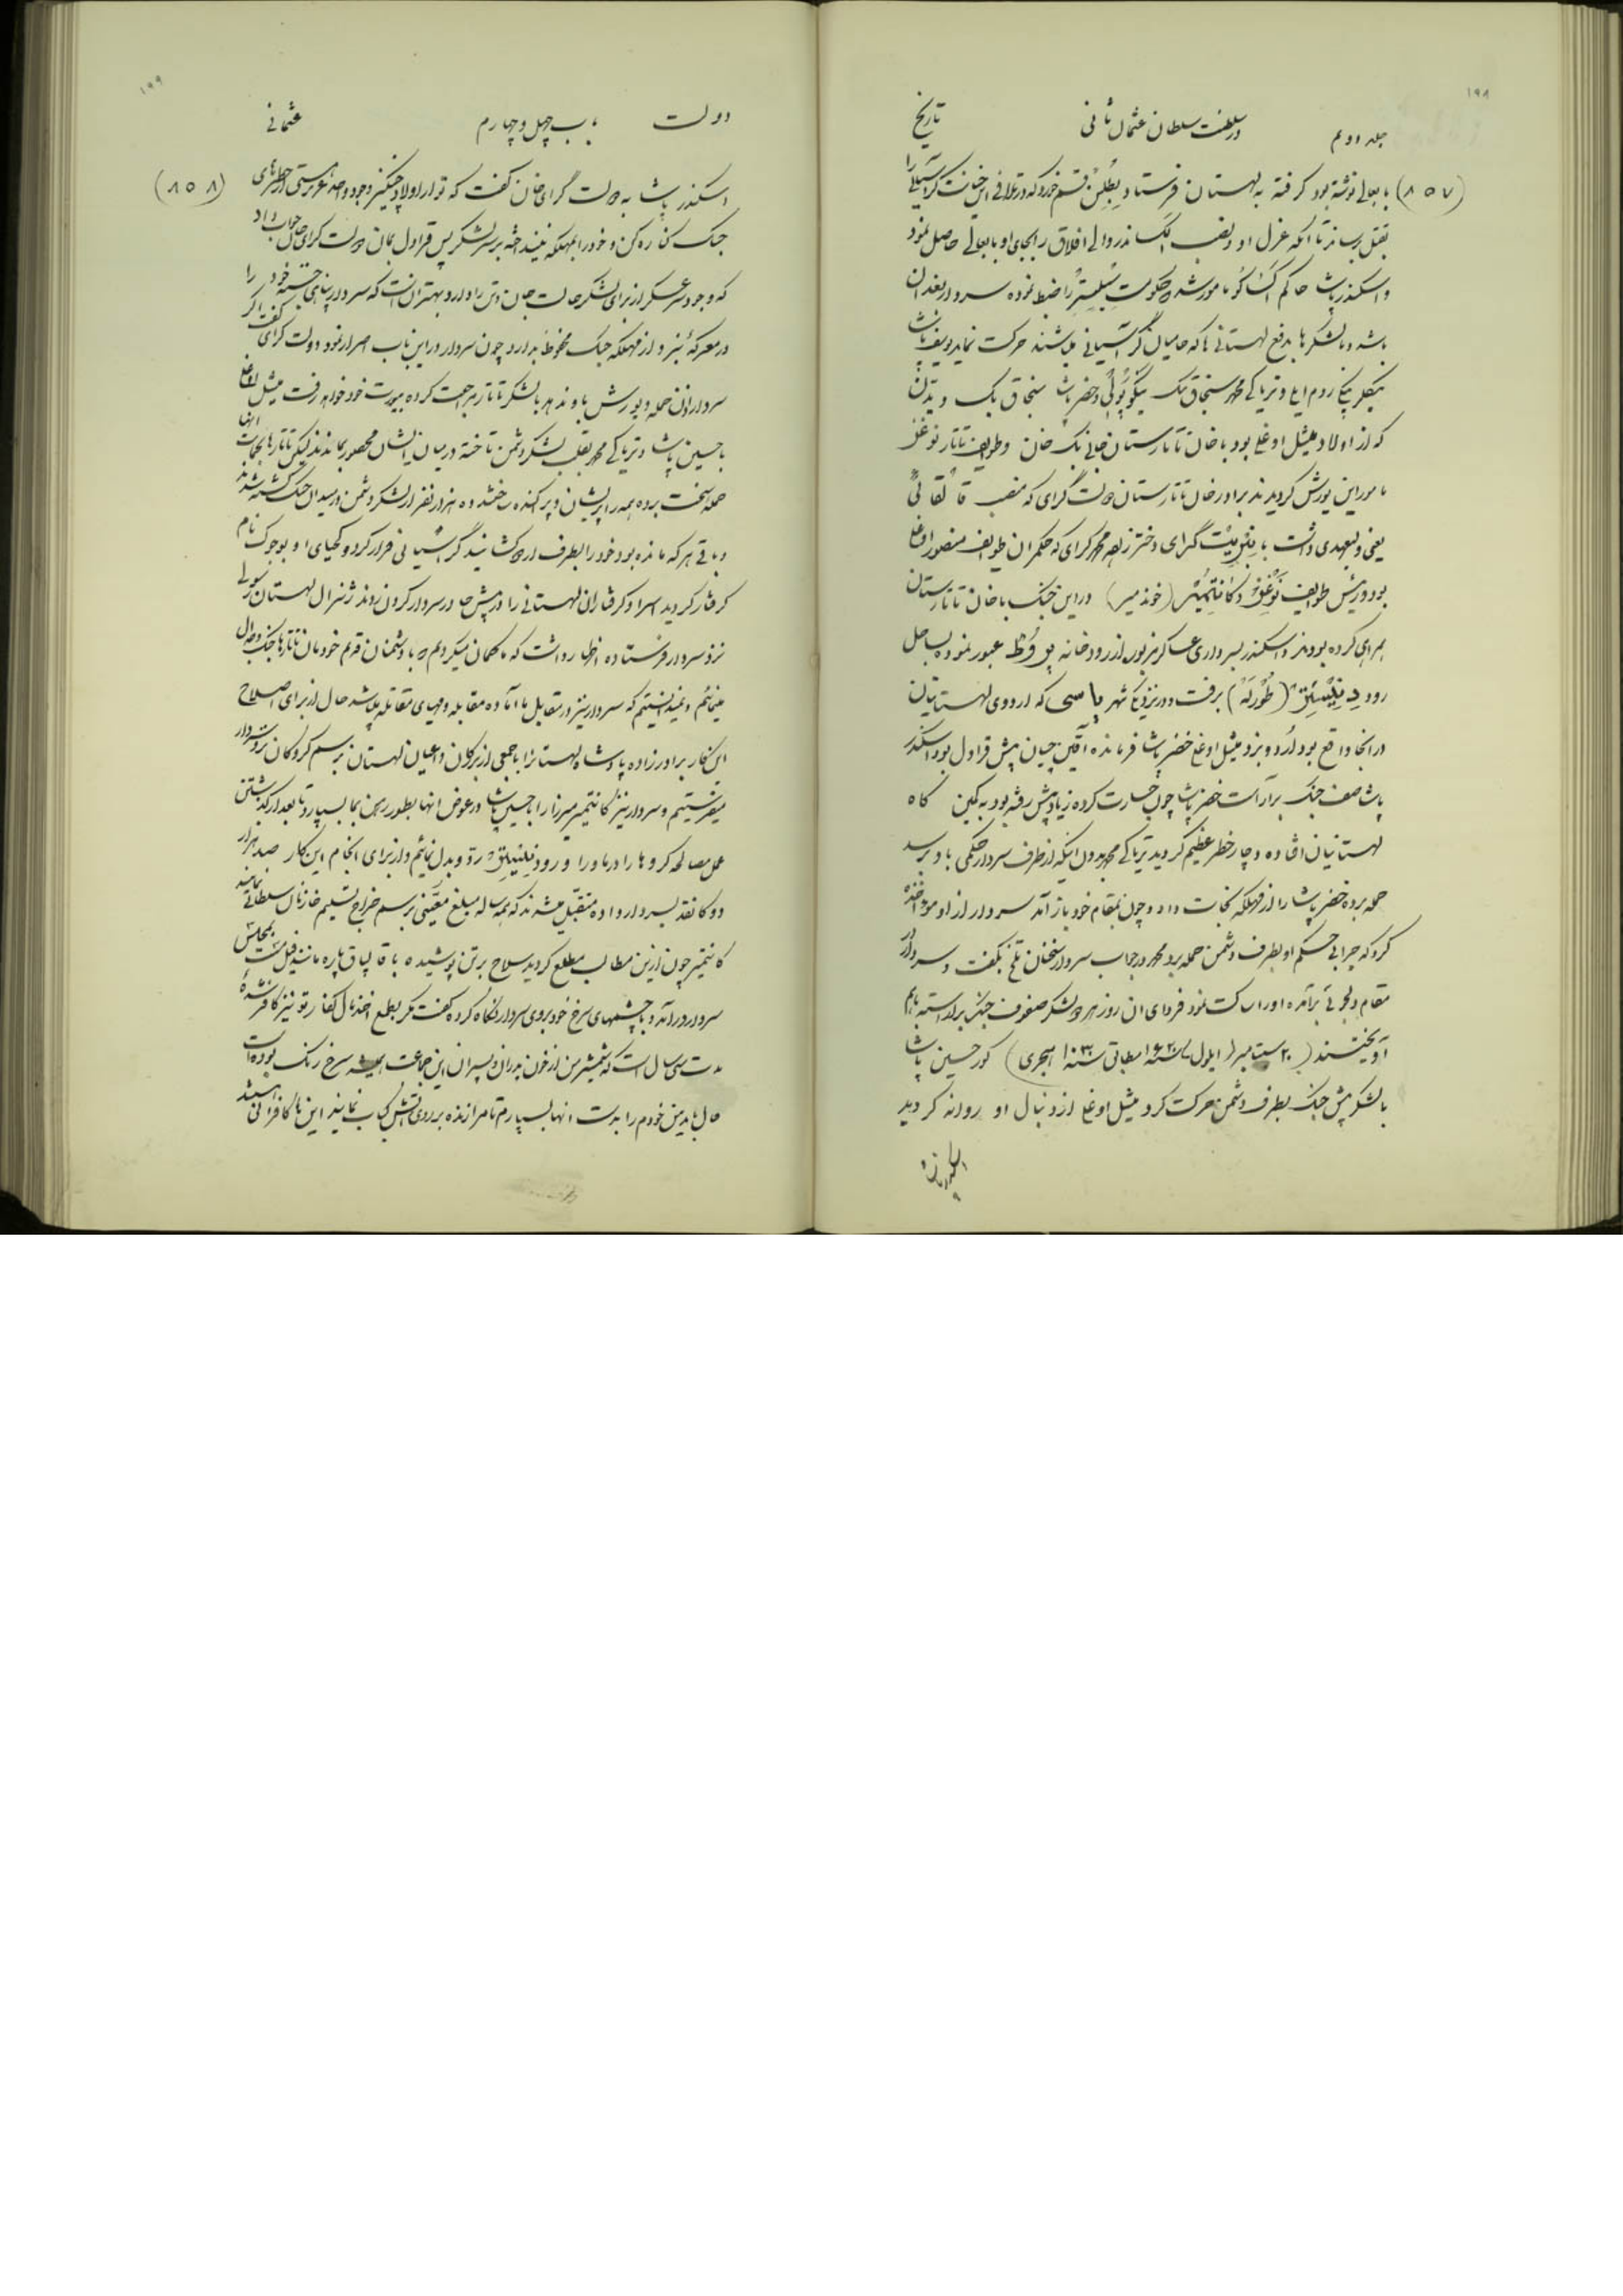 ۱۹۸
جلد دوم در سلطنت سلطان عثمان ثانی تاریخ
(۸۵۷) بابعالی نوشته بود گرفته به لهستان فرستاد بطلن قسم خورد که در تلافی این خیانت گراسیانی را
بقتل رساند تا آنکه عزل او و نصب الکساندر والی افلاق را بجای او بابعالی حاصل نمود
و اسکندر پاشا حاکم مامور شد که حکومت را ضبط نموده سردار بعد از ان
باشد و بالشکرها بدفع لهستانی ها که حامیان گراسیانی میباشند حرکت نماید یوسف پاشا
بیکلربیکی روم ایلی و تریاکی محمد سنجاق بیک نیکوپولی و خضر پاشا سنجاق بیک ویدن
که از اولاد میثل اوغلی بود با خان تاتارستان جانی بک خان و طوایف تاتار نوغز
مامور این یورش گردیدند برادر خان تاتارستان دولت گرای که منصب قالقائی
یعنی ولیعهدی داشت با گرای و خضر محمد گرای که حکمران طوایف منصور اوغلی
بود و رئیس طوایف نوغز و کانتمیر (خوندمیر) در این جنگ با خان تاتارستان
همراهی کرده بودند و اسکندر بسرداری عساکر مزبور از رودخانه عبور نموده بساحل
رود (طورله) برفت و در نزدیک شهر یاسی که اردوی لهستانیان
در انجا واقع بود اردو بزد میثل اوغلی خضر پاشا فرمانده آقین چیان پیش قراول بود اسکندر
پاشا صف جنگ برآراست خضر پاشا چون جسارت کرده زیاد پیش رفته بود به کمین گاه
لهستانیان افتاده دچار خطر عظیم گردید تریاکی محمد بدون اینکه از طرف سردار حکمی باو برسد
حمله برده خضر پاشا را از مهلکه نجات داد و چون بمقام خود باز آمد سردار از او مواخذه
کرد که چرا بی حکم او بطرف دشمن حمله برد محمد در جواب سردار سخنان تلخ بگفت و سردار در
مقام دلجوئی برآمده او را ساکت نمود فردای ان روز هر دو لشکر صفوف جنگ براراسته بهم
آویختند (۲۰ سپتامبر ایلول سنه ۱۶۲۰ مطابق سنه ۱۰۳۰ هجری) کور حسین پاشا
بالشکر پیش جنگ بطرف دشمن حرکت کرد میثل اوغلی از دنبال او روانه گردید
۱۹۹
دولت باب چهل و چهارم عثمانی
(۸۵۸) اسکندر پاشا به دولت گرای خان گفت که تو از اولاد چنگیز و وجود عزیز هستی از خطرهای
جنگ کناره کن و خود را بمهلکه نیندازخته بر سر لشکر پس قراول بمان دولت گرای خان جواب داد
که وجود سر عسکر از برای لشکر حالت جان و تن را دارد و بهتر ان است که سردار جثه خود را
در معرکه نبرد و از مهلکه جنگ محفوظ بدارد چون سردار در این باب اصرار نمود دولت گرای گفت اگر
سردار اذن حمله و یورش باو ندهد بالشکر تاتار مراجعت کرده بیورت خود خواهد رفت میثل اوغلی
با حسین پاشا و تریاکی محمد بقلب لشکر دشمن تاخته در میان ایشان محصور بماندند لیکن تاتارها بحمایت انها
حمله سخت برده همه را پریشان و پراکنده ساختند و ده هزار نفر از لشکر دشمن در میدان جنگ کشته شدند
و باقی هر که مانده بود خود را بطرف اردو کشانیدند گراسیانی فرار کرد و کهیای او بوجوک نام
گرفتار گردید اسرا و گرفتاران لهستانی را در پیش چادر سردار گردن زدند ژنرال لهستان رسولی
نزد سردار فرستاده اظهار داشت که ما گمان میکردیم که با دشمنان قدیم خودمان تاتارها جنگ و جدال
مینمائیم و نمیدانستیم که سردار نیز در مقابل ما آماده مقابله و مهیای مقاتله میباشد حال از برای اصلاح
این کار برادرزاده پادشاه لهستان را با جمعی از بزرگان و اعیان لهستان برسم گروگان نزد سردار
میفرستیم و سردار نیز کانتمیر میرزا را با حسین پاشا در عوض انها بطور رهن بما بسپارد تا بعد از گذشتن
عمل مصالحه گروها را در ماوراء رود رد و بدل نمائیم و از برای انجام این کار صد هزار
دوکا نقد بسردار داده متقبل میشدند که همه ساله مبلغ معینی برسم خراج تسلیم خازنان سلطانی نمایند
کانتمیر چون از این مطالب مطلع گردید سلاح بر تن پوشیده با قالپاق پاره مانند فیل مست بمجلس
سردار درآمد و با چشمهای سرخ خود بروی سردار نگاه کرده گفت مگر بطمع اخذ مال کفار تو نیز کافر شده
مدت سی سال است که شمشیر من از خون پدران و پسران این جماعت همیشه سرخ رنگ بوده است
حال بیائید من خودم را بدست انها بسپارم تا مرا زنده بر روی آتش کباب نمایند این ها کافرانی هستند